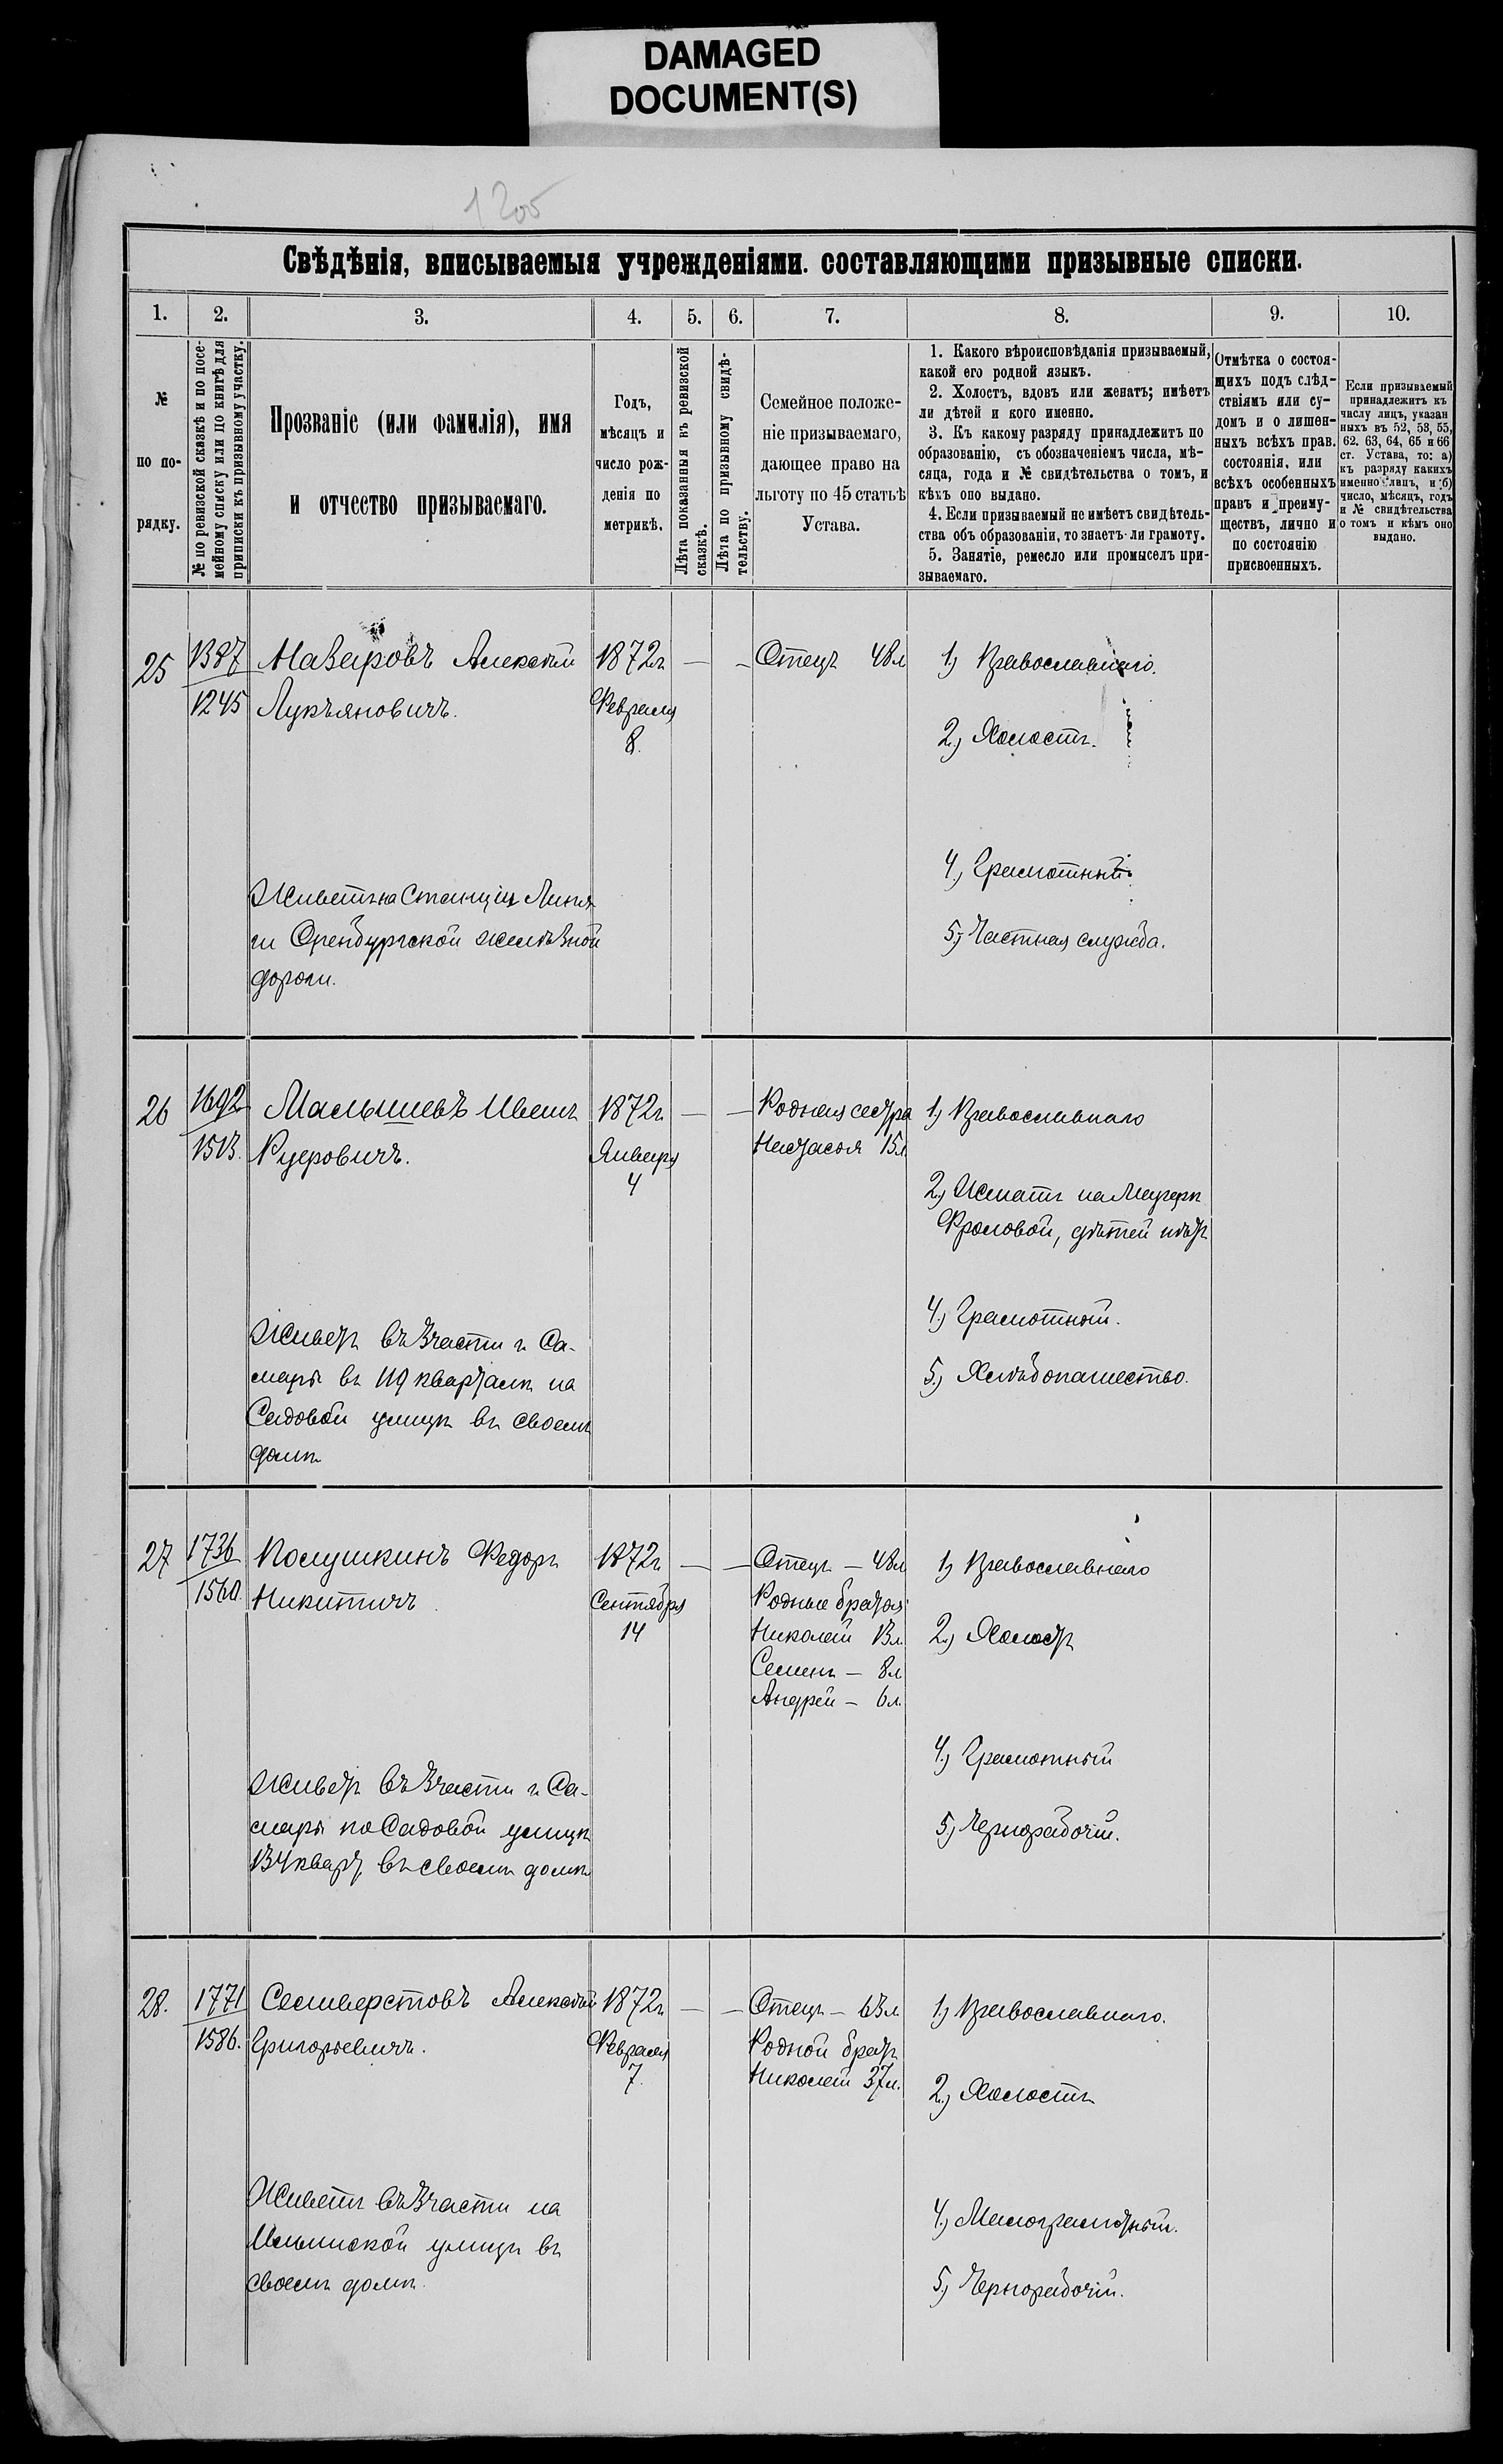 DAMAGED
DOCUMENT(S)
1205
Свѣдѣнія, вписываемыя учрежденіями. составляющими призывные списки.
1. 2. 3. 4. 5. 6. 7. 8. 9. 10.
№
по по-
рядку.
№ по ревизской сказкѣ и по посе-
мейному списку или по книгѣ для
приписки къ призывному участку.
Прозваніе (или фамилія), имя
и отчество призываемаго.
Годъ,
мѣсяцъ и
число рож-
денія по
метрикѣ.
Лѣта показанныя въ ревизской
сказкѣ.
Лѣта по призывному свидѣ-
тельству.
Семейное положе-
ніе призываемаго,
дающее право на
льготу по 45 статьѣ
Устава.
1. Какого вѣроисповѣданія призываемый,
какой его родной языкъ.
2. Холостъ, вдовъ или женатъ; имѣетъ
ли дѣтей и кого именно.
3. Къ какому разряду принадлежитъ по
образованію, съ обозначеніемъ числа, мѣ-
сяца, года и № свидѣтельства о томъ, и
кѣхъ оно выдано.
4. Если призываемый не имѣетъ свидѣтель-
ства объ образованіи, то знаетъ-ли грамоту.
5. Занятіе, ремесло или промыселъ при-
зываемаго.
Отмѣтка о состоя-
щихъ подъ слѣд-
ствіямъ или су-
домъ и о лишен-
ныхъ всѣхъ прав.
состоянія, или
всѣхъ особенныхъ
правъ и преиму-
ществъ, лично и
по состоянію
присвоенныхъ.
Если призываемый
принадлежитъ къ
числу лицъ, указан
ныхъ въ 52, 53, 55,
62. 63, 64, 65 и 66
ст. Устава, то: а)
къ разряду какихъ
именно лицъ, и б)
число, мѣсяцъ, годъ
и № свидѣтельства
о томъ и кѣмъ оно
выдано.
25 1387 Назаровъ Алексѣй 1872г. — — Отецъ 48л 1) Православнаго.
1245 Лукъяновичъ. Февраля
8.
2) Холостъ.
4) Грамотный
Живетъ на Станціи Липя-
ги Оренбургской желѣзной
дороги.
5) Частная служба.
26 1692 Малышевъ Иванъ 1872г. — — Родная сестра 1) Православнаго
1513. Января Настасья 15л
4
2) Женатъ на
Фроловой, дѣтей нѣтъ
4) Грамотный.
Живетъ въ 3 части г. Са-
мары въ 119 кварталѣ на
Садовой улицѣ въ своемъ
домѣ
5.) Хлѣбопашество.
27 1736 Полушкинъ Федоръ 1872г. — — Отецъ — 48л 1) Православнаго
1560. Никитичъ Сентября Родные братья
14 Николай 13л. 2) Холостъ
Семенъ — 8л
Андрей — 6л.
4) Грамотный
Живетъ въ 3 части г. Са-
мары по Садовой улицѣ
134 кварт. въ своемъ домѣ
5) Чернорабочій.
28. 1771 Селиверстовъ Алексѣй 1872г. — — Отецъ — 63л 1) Православнаго.
1586. Григорьевичъ. Февраля Родной братъ
7. Николай 37л. 2) Холостъ
4) Малограмотный.
Живетъ въ 3 части на
Ильинской улицѣ въ
своемъ домѣ.
5) Чернорабочій.